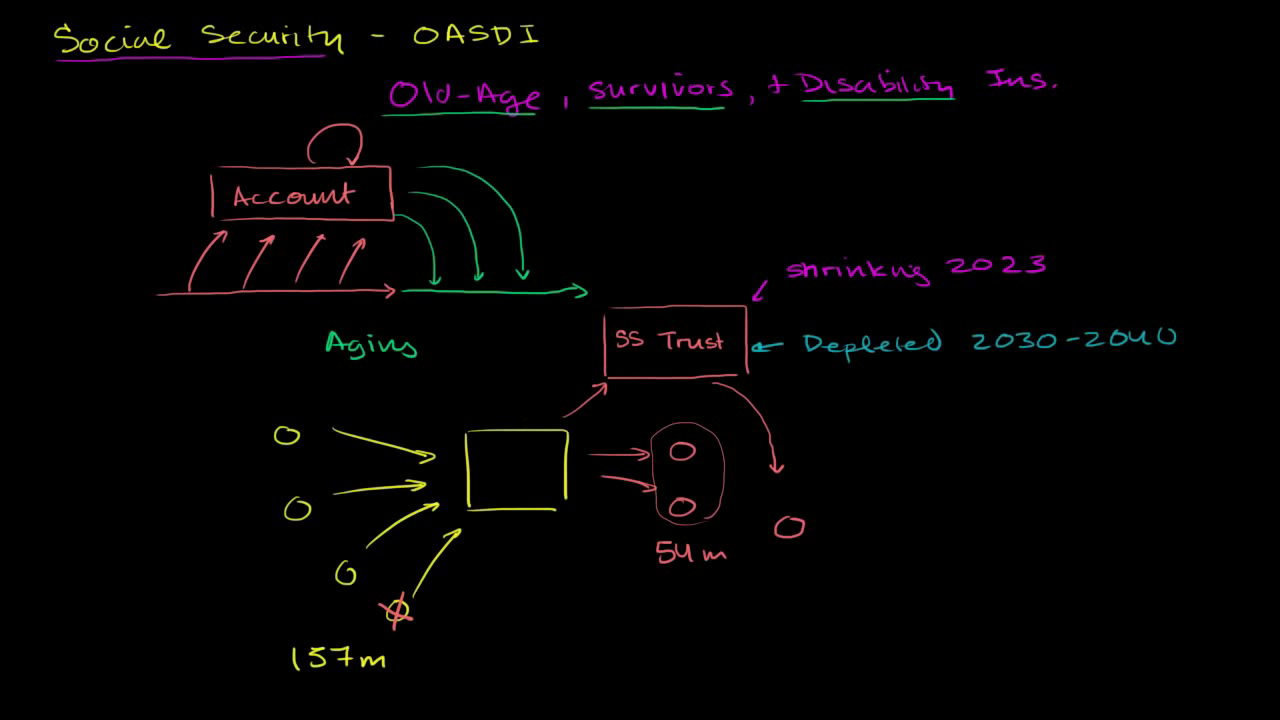 Social Security - OASDI
Old-Age, survivors, + Disability Ins.
Account
shrinking 2023
SS Trust
Depleted 2030-2040
Aging
54m
157m